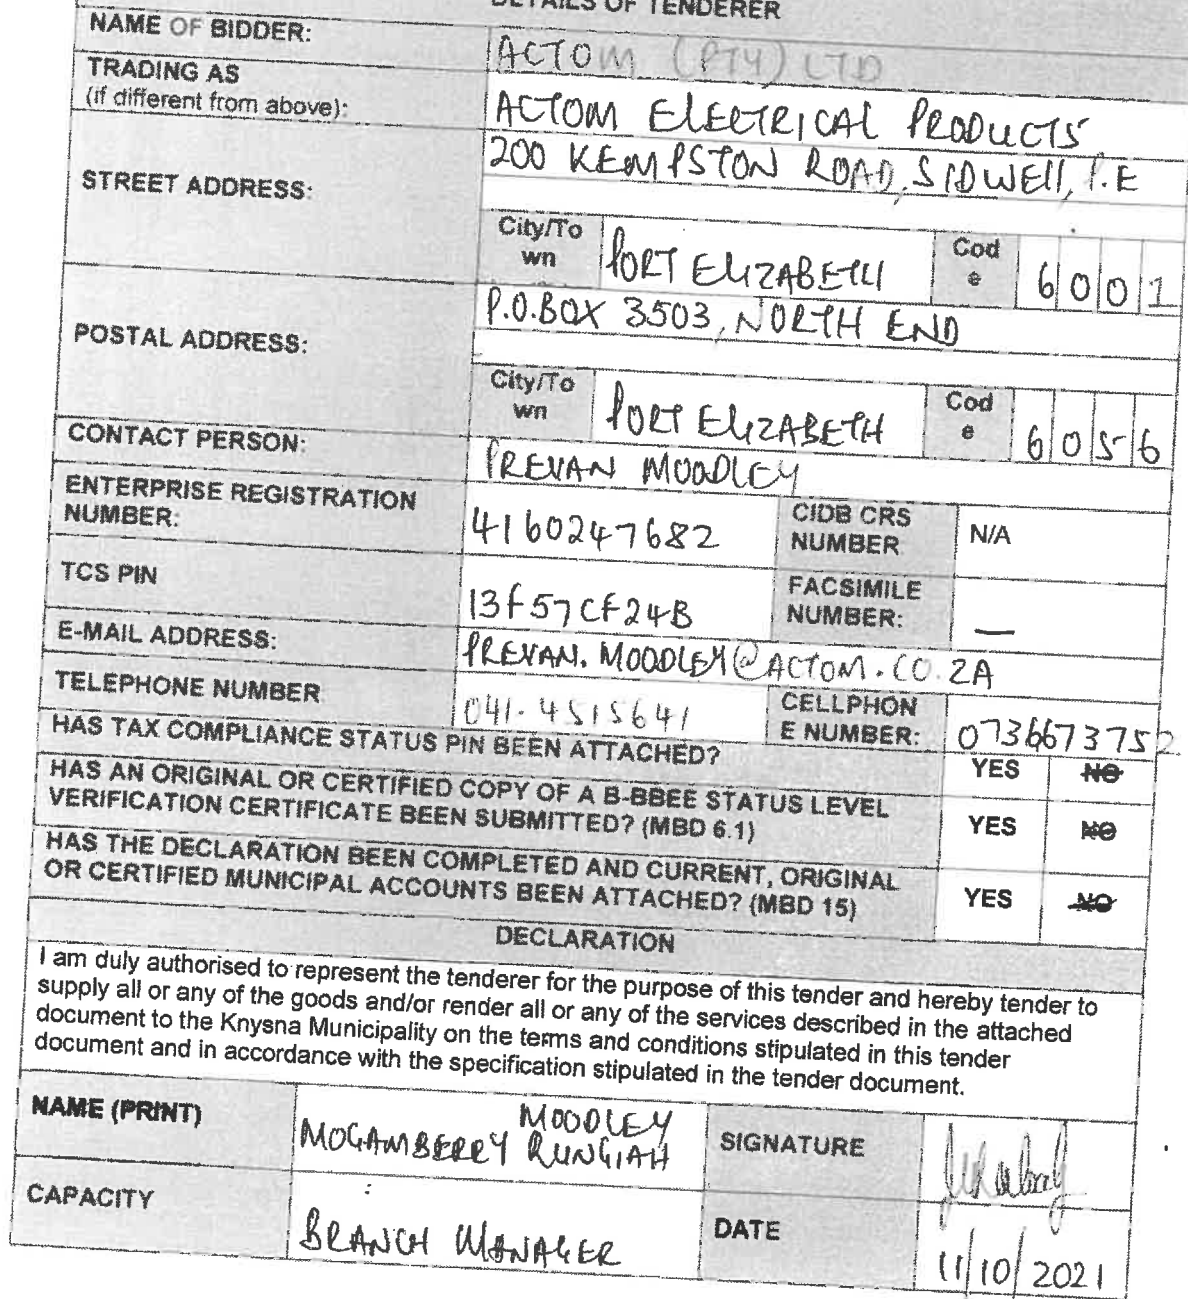 DETAILS OF TENDERER
NAME OF BIDDER: ACTOM (PTY) LTD
TRADING AS
(if different from above): ACTOM ELECTRICAL PRODUCTS
STREET ADDRESS: 200 KEMPSTON ROAD, SIDWELL, P.E
City/To
wn PORT ELIZABETH Cod
e 6001
POSTAL ADDRESS: P.O.BOX 3503, NORTH END
City/To
wn PORT ELIZABETH Cod
e 6056
CONTACT PERSON: PREVAN MOODLEY
ENTERPRISE REGISTRATION
NUMBER: 4160247682 CIDB CRS
NUMBER N/A
TCS PIN 13f57CF24B FACSIMILE
NUMBER: —
E-MAIL ADDRESS: PREVAN.MOODLEY@ACTOM.CO.ZA
TELEPHONE NUMBER 041-4515641 CELLPHON
E NUMBER: 0736673752
HAS TAX COMPLIANCE STATUS PIN BEEN ATTACHED? YES NO
HAS AN ORIGINAL OR CERTIFIED COPY OF A B-BBEE STATUS LEVEL
VERIFICATION CERTIFICATE BEEN SUBMITTED? (MBD 6.1) YES NO
HAS THE DECLARATION BEEN COMPLETED AND CURRENT, ORIGINAL
OR CERTIFIED MUNICIPAL ACCOUNTS BEEN ATTACHED? (MBD 15) YES NO
DECLARATION
I am duly authorised to represent the tenderer for the purpose of this tender and hereby tender to
supply all or any of the goods and/or render all or any of the services described in the attached
document to the Knysna Municipality on the terms and conditions stipulated in this tender
document and in accordance with the specification stipulated in the tender document.
NAME (PRINT) MOODLEY
MOGAMBERRY RUNGIAH SIGNATURE
CAPACITY BRANCH MANAGER DATE 11/10/2021